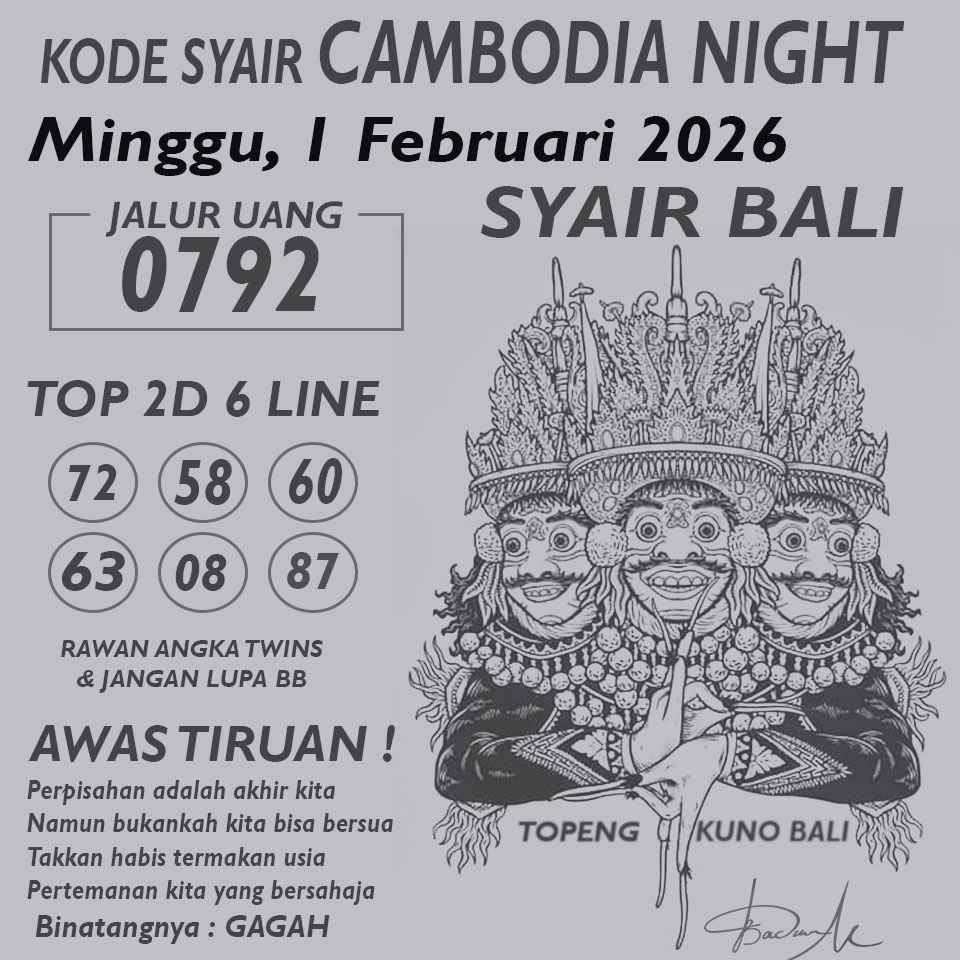 KODE SYAIR CAMBODIA NIGHT
Minggu, 1 Februari 2026
SYAIR BALI
JALUR UANG
0792
TOP 2D 6 LINE
72 58 60
63 08 87
RAWAN ANGKA TWINS
& JANGAN LUPA BB
AWAS TIRUAN !
Perpisahan adalah akhir kita
Namun bukankah kita bisa bersua
Takkan habis termakan usia
Pertemanan kita yang bersahaja
Binatangnya : GAGAH
TOPENG KUNO BALI